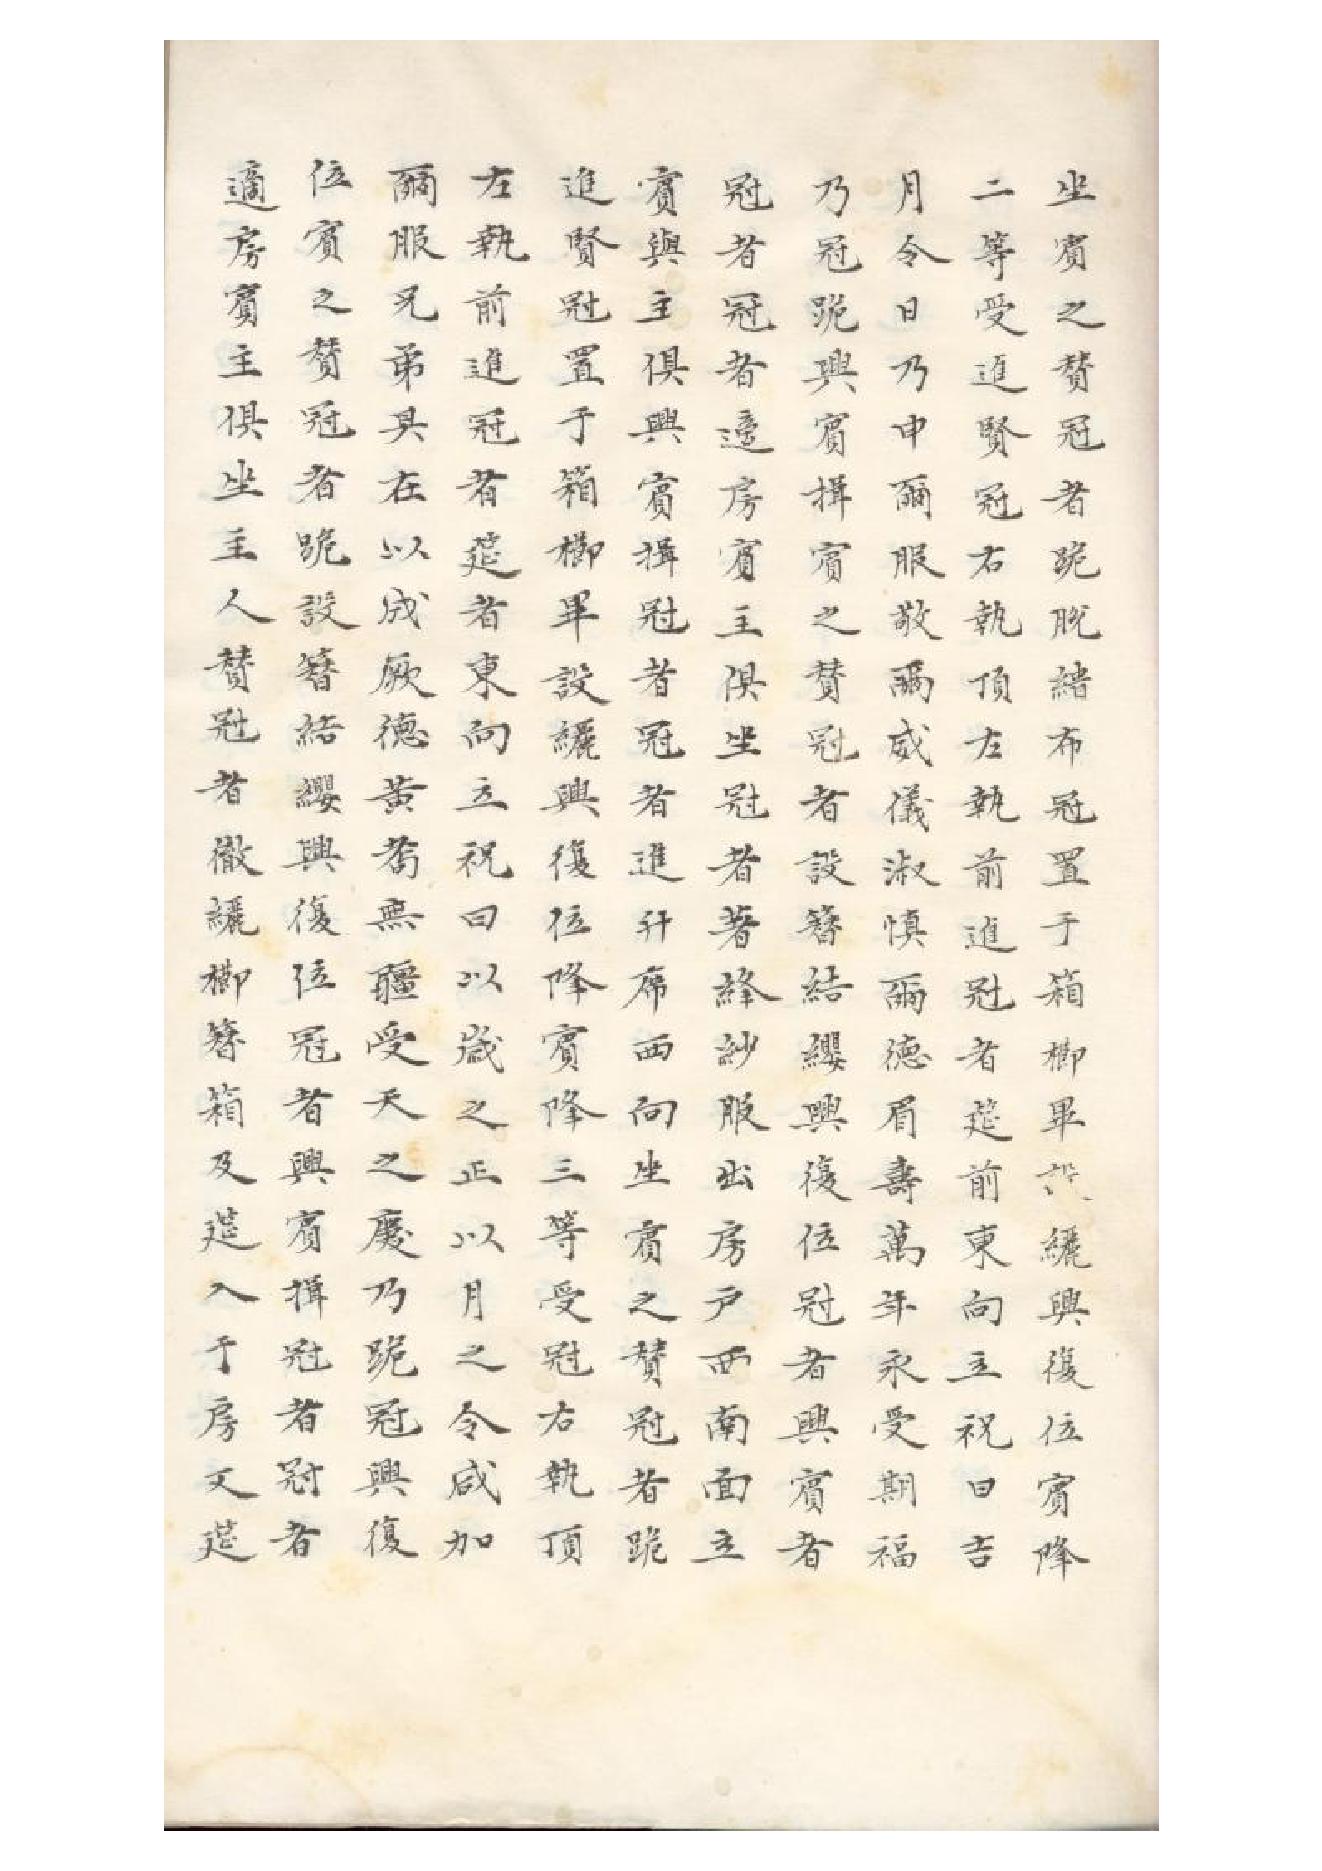 坐賓之贊冠者跪脫緇布冠置于箱櫛畢設纚興復位賓降
二等受進賢冠右執頂左執前進冠者筵前東向立祝曰吉
月令日乃申爾服敬爾威儀淑慎爾德眉壽萬年永受期福
乃冠跪興賓揖賓之贊冠者設簪結纓興復位冠者興賓者
冠者冠者適房賓主俱坐冠者著絳紗服出房户西南面立
賓與主俱興賓揖冠者冠者進升席西向坐賓之贊冠者跪
進賢冠置于箱櫛畢設纚興復位降賓降三等受冠右執頂
左執前進冠者筵者東向立祝曰以歲之正以月之令咸加
爾服兄弟具在以成厥德黃耇無疆受天之慶乃跪冠興復
位賓之贊冠者跪設簪結纓興復位冠者興賓揖冠者冠者
適房賓主俱坐主人贊冠者徹纚櫛簪箱及筵入于房又筵